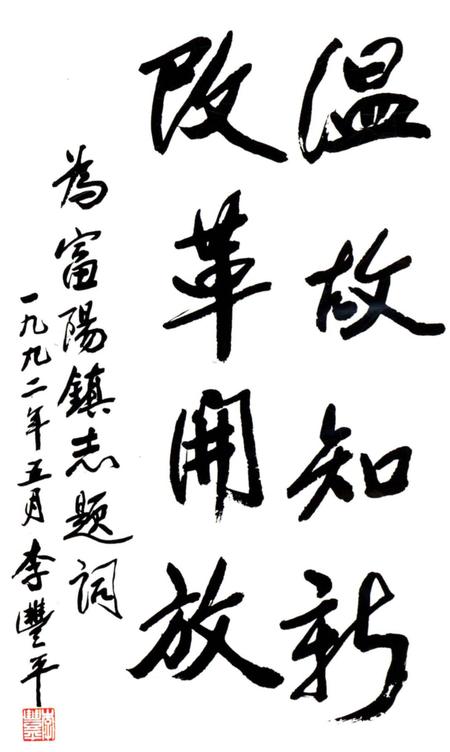 温故知新
改革開放
為富陽鎮志題詞
一九九二年五月 李豐平